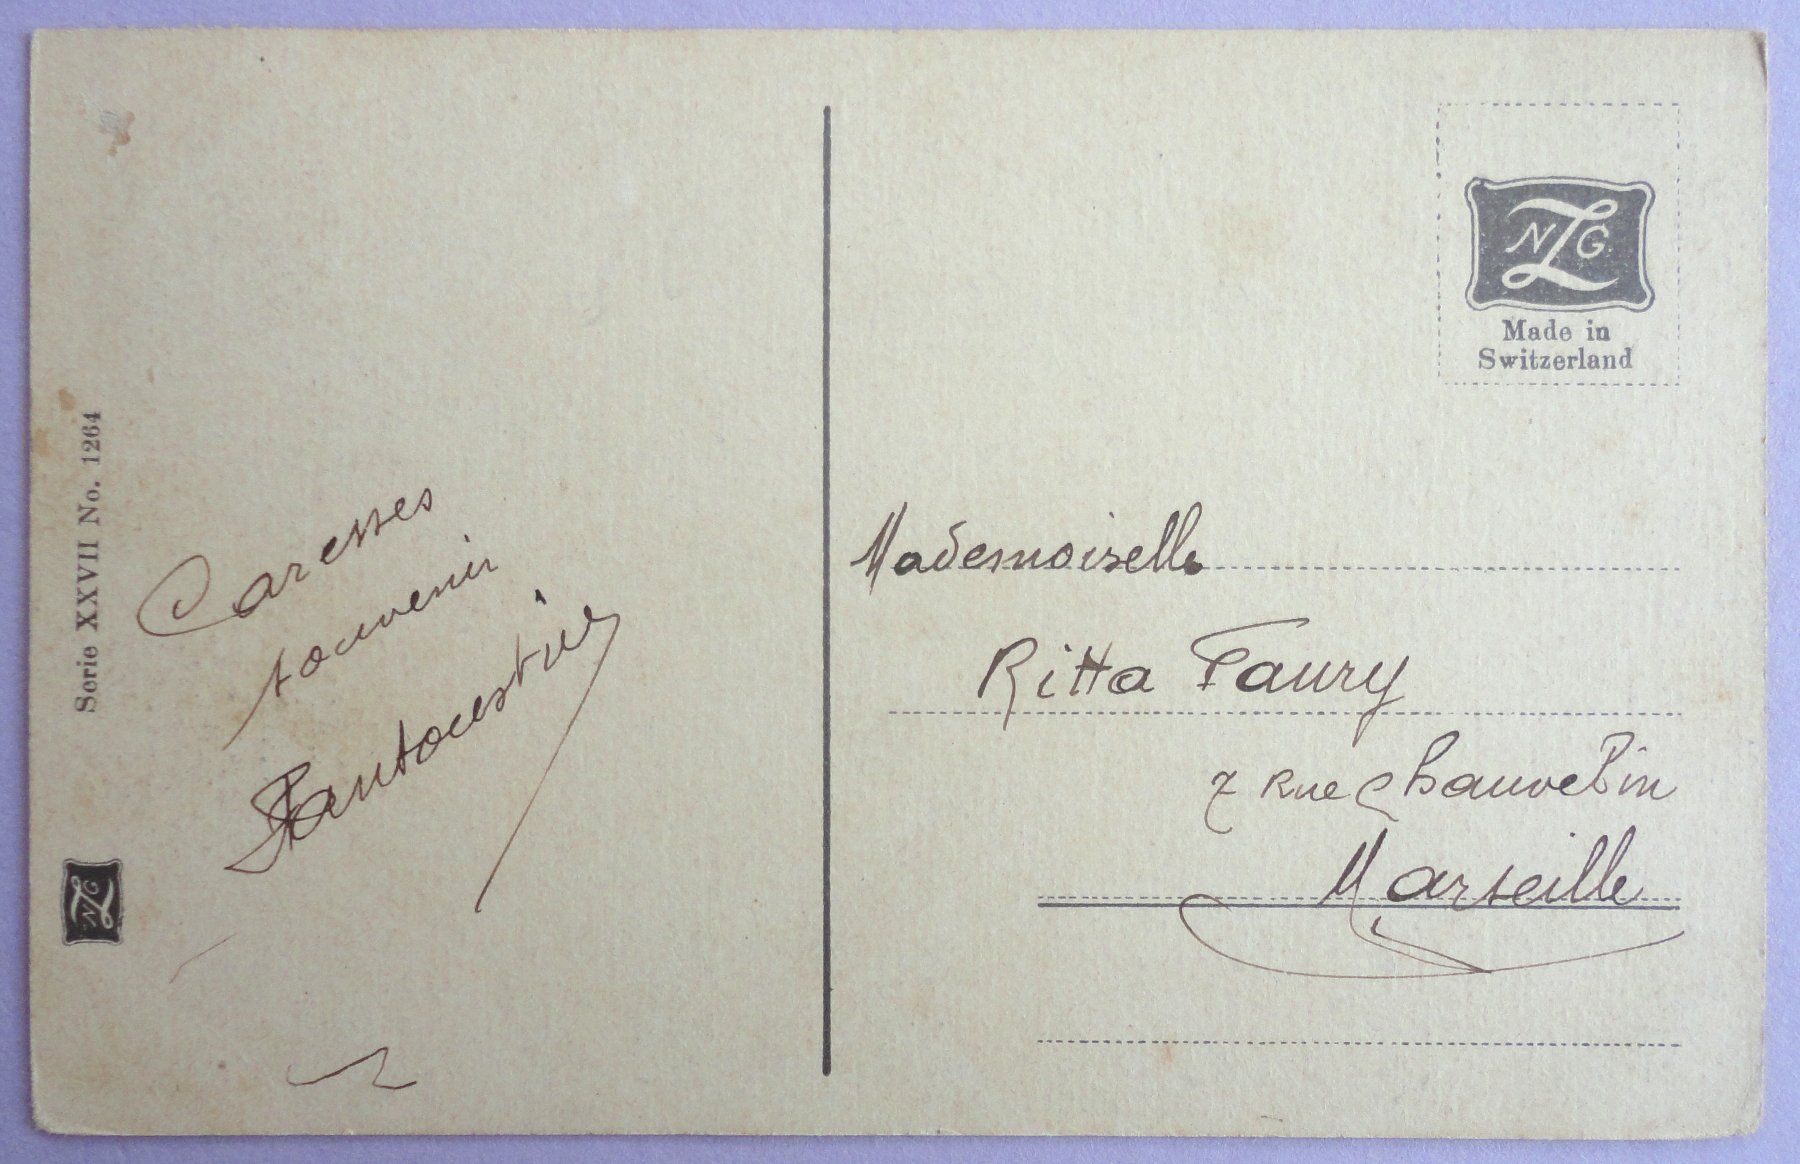 Serie XXVII No. 1264
Caresses
souvenir
NZG
NZG
Made in
Switzerland
Mademoiselle
Ritta Faury
7 Rue Chauvelin
Marseille